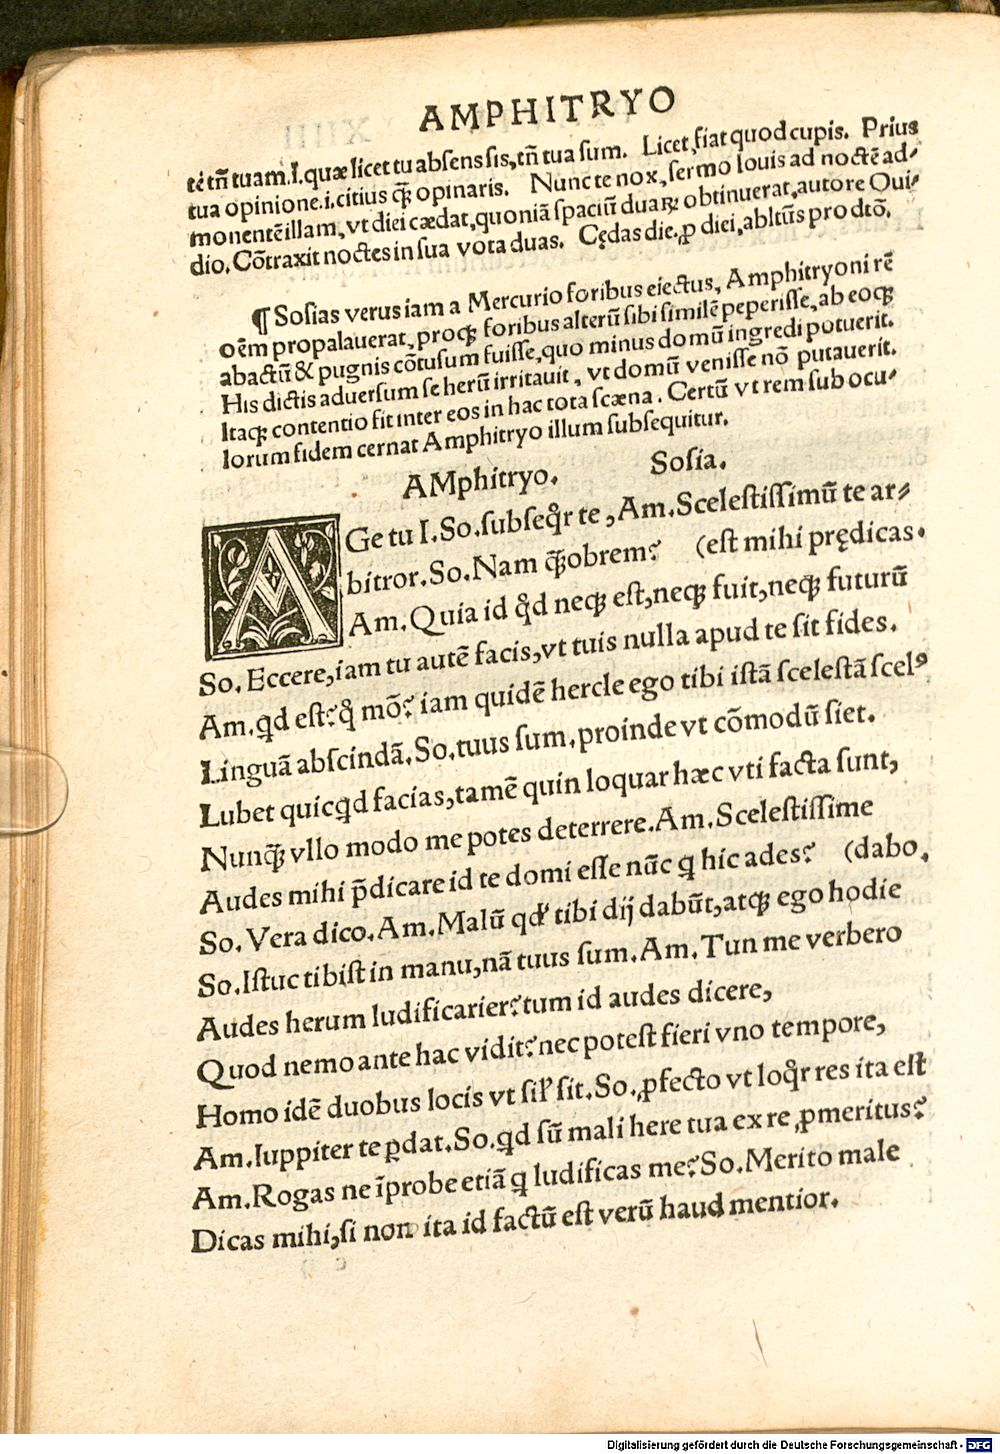 AMPHITRYO
tē tñ tuam.i.quæ licet tu absens sis,tñ tua sum. Licet,fiat quod cupis. Prius
tua opinione.i.citius q̃ȝ opinaris. Nunc te nox,sermo Iouis ad noctē ad-
monentē illam,vt diei cædat,quoniā spaciū duaꝝ obtinuerat,autore Oui-
dio.Cõtraxit noctes in sua vota duas. Cędas die.ꝓ diei,abltũs pro dtõ.
¶ Sosias verus iam a Mercurio foribus eiectus, Amphitryoni rē
oēm propalauerat,proqȝ foribus alterū sibi similē peperisse,ab eoqȝ
abactū & pugnis cōtusum fuisse,quo minus domū ingredi potuerit.
His dictis aduersum se herū irritauit, vt domū venisse nō putauerit.
Itaqȝ contentio fit inter eos in hac tota scæna. Certū vt rem sub ocu-
lorum fidem cernat Amphitryo illum subsequitur.
AMphitryo. Sosia.
AGe tu I.So.subseq̊r te,Am.Scelestissimū te ar-
bitror.So.Nam q̃ȝobrem? (est mihi prędicas.
Am.Quia id q̊d neqȝ est,neqȝ fuit,neqȝ futurū
So. Eccere,iam tu autē facis,vt tuis nulla apud te sit fides.
Am.ꝗd est?q̊ mō? iam quidē hercle ego tibi istā scelestā scelꝰ
Linguā abscindā.So.tuus sum,proinde vt cōmodū siet.
Lubet quicꝗd facias,tamē quin loquar hæc vti facta sunt,
Nunq̃ȝ vllo modo me potes deterrere.Am.Scelestissime
Audes mihi p̄dicare id te domi esse nūc ꝗ hic ades? (dabo.
So. Vera dico.Am.Malū qđ tibi dij dabūt,atqȝ ego hodie
So.Istuc tibist in manu,nā tuus sum.Am.Tun me verbero
Audes herum ludificarier?tum id audes dicere,
Quod nemo ante hac vidit?nec potest fieri vno tempore,
Homo idē duobus locis vt sil' sit.So.ꝓfecto vt loq̊r res ita est
Am.Iuppiter te ꝑdat.So.ꝗd sū mali here tua ex re ꝓmeritus?
Am.Rogas ne īprobe etiā ꝗ ludificas me?So.Merito male
Dicas mihi,si non ita id factū est verū haud mentior.
Digitalisierung gefördert durch die Deutsche Forschungsgemeinschaft - DFG